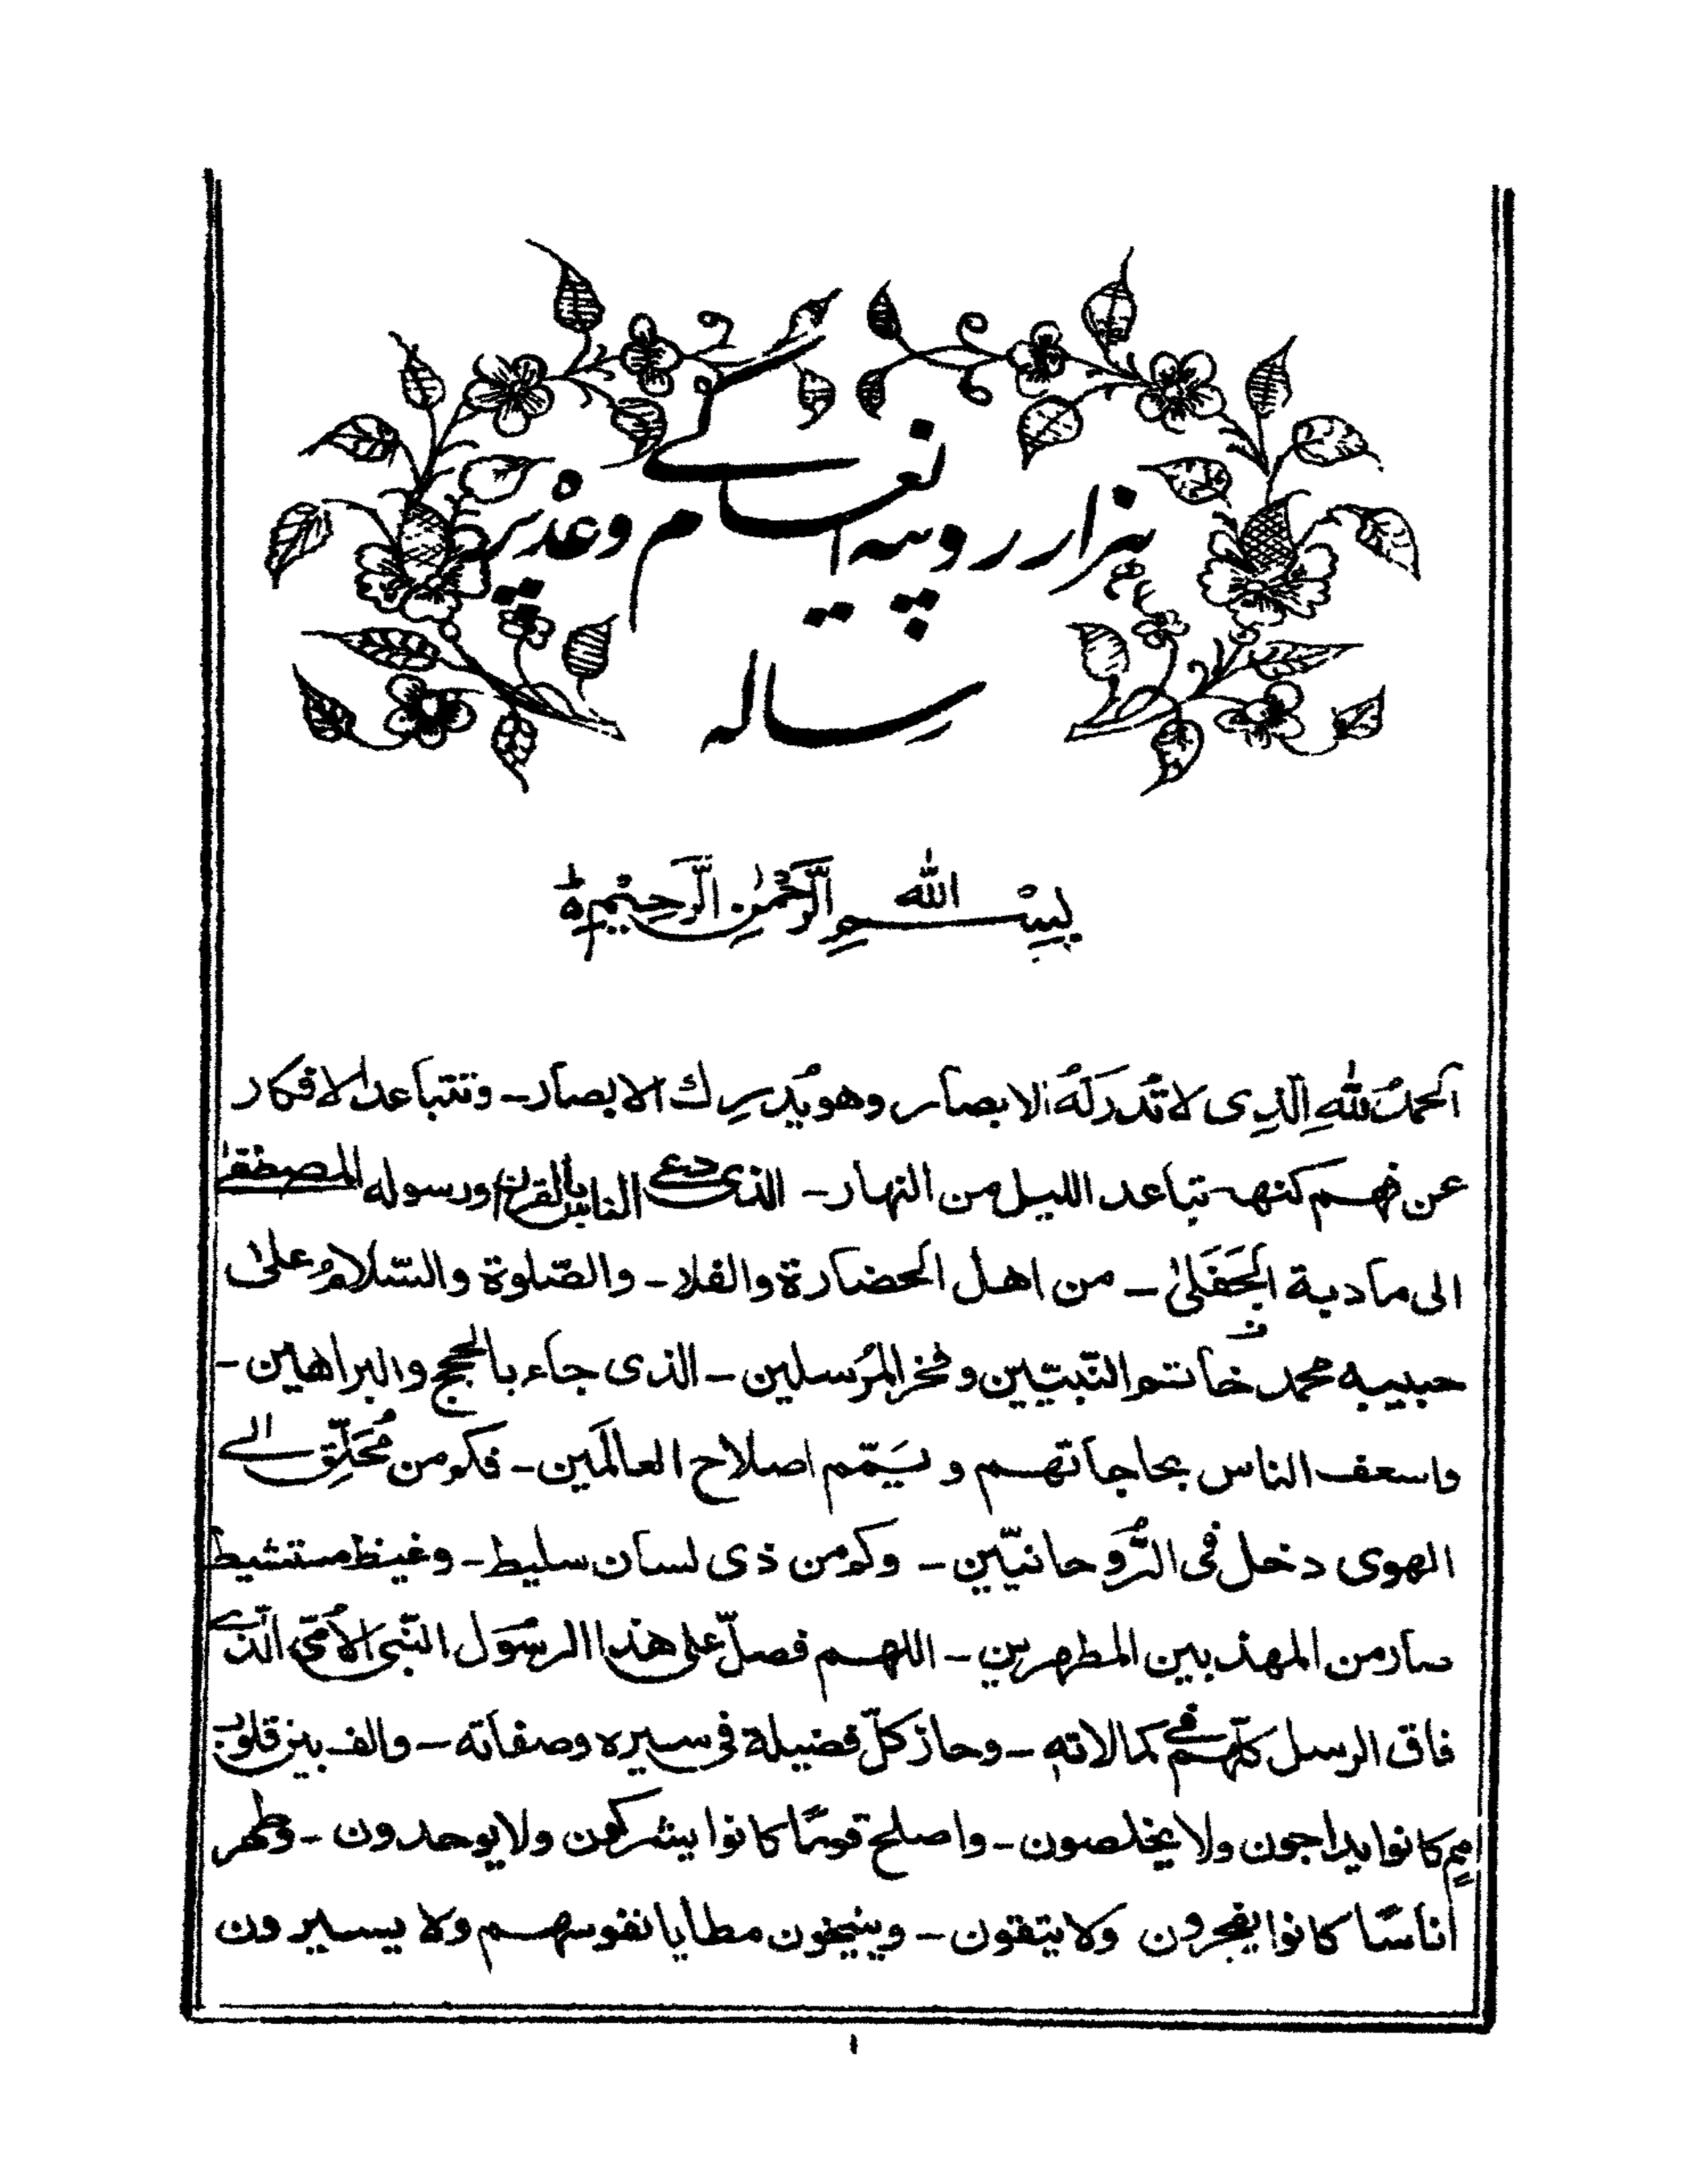 ہزار روپیہ انعامی وعدہ پر
رسالہ
بِسْــمِ اللّٰهِ الرَّحْمٰنِ الرَّحِيْمِ ۝ؕ
اَلحمدُ للّٰهِ الّذِى لا تُدرکهُ الابصار وهو يُدرِك الابصار۔ وتتباعد الافكار
عن فهم كنهه تباعد الليل من النهار۔ الذى دعى الناس بالقرآن ورسوله المصطفٰى
الى مأدبة الجَفَلىٰ۔ من اهل الحضارة والفلا۔ والصّلوة والسّلامُ علىٰ
حبيبه محمد خاتم النّبيّين وفخر المُرسلين۔ الذى جاء بالحجج والبراهين۔
واسعف الناس بحاجاتهم ويَمّم اصلاح العالَمين۔ فكم من مُحَلِّق الى
الهوى دخل فى الرُّوحانيّين۔ وكم من ذى لسان سليط۔ وغيظ مستشيط
صار من المهذبين المطهرين۔ اللهم فصلّ على هذا الرسُول النّبى الاُمّى الّذى
فاق الرسل كلّهم فى كمالاته۔ وحاز كلّ فضيلة فى سيره وصفاته۔ والف بين قلوب
اممٍ كانوا يداجون ولا يخلصون۔ واصلح قومًا كانوا يشركون ولا يوحدون۔ وطهر
أناسًا كانوا يفجرون ولا يتقون۔ وينيخون مطايا نفوسهم ولا يسيرون
۱